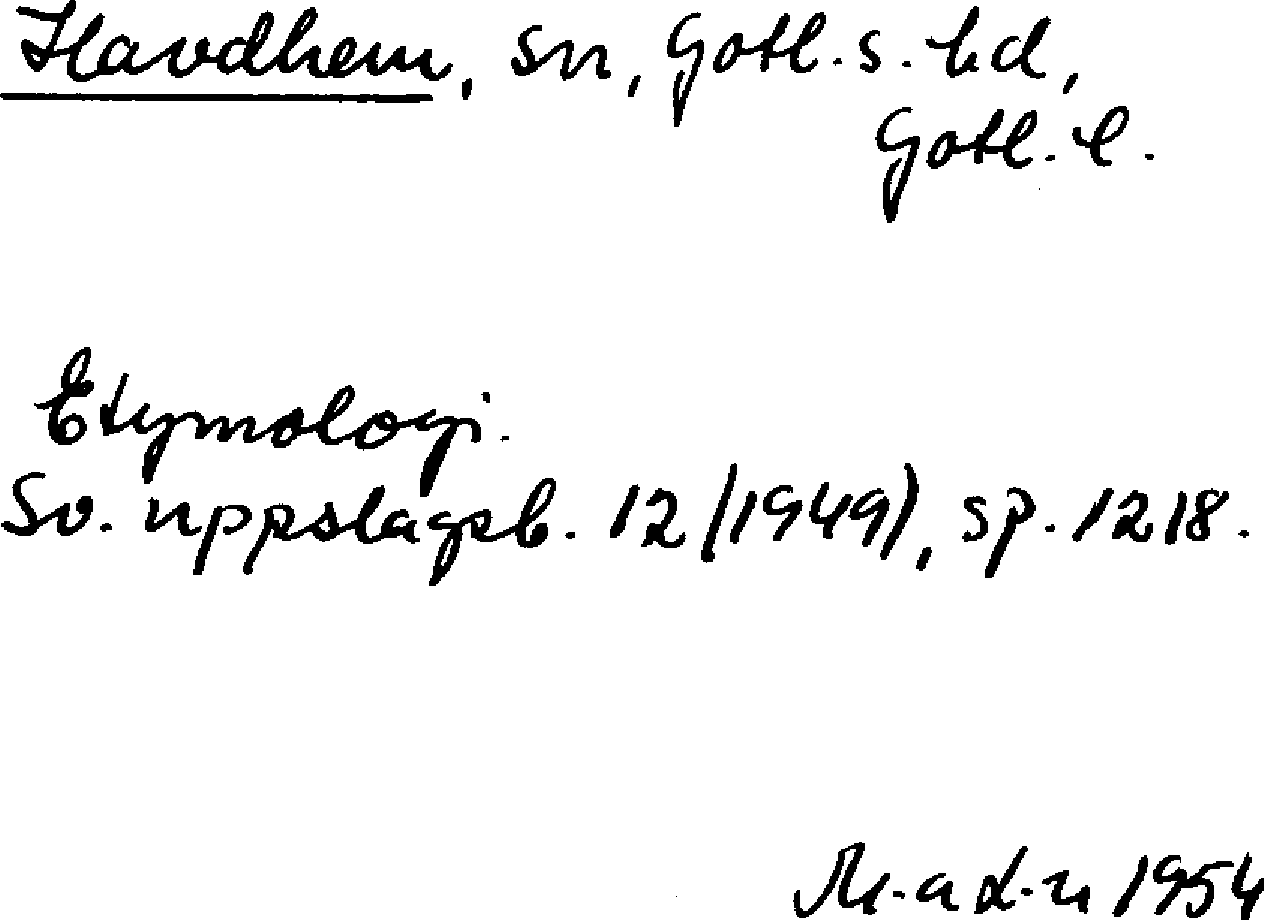 Havdhem, sn, Gotl. s. hd,
Gotl. l.
Etymologi.
Sv. uppslagsb. 12 (1949), sp. 1218.
1954